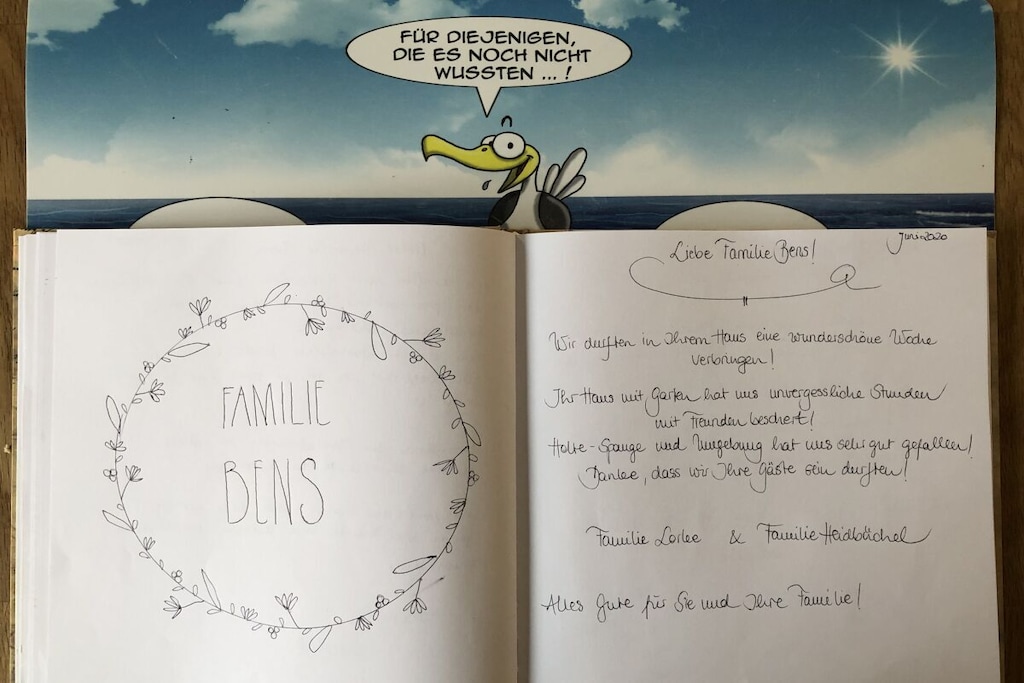 FÜR DIEJENIGEN,
DIE ES NOCH NICHT
WUSSTEN ... !
FAMILIE
BENS
Juni 2020
Liebe Familie Bens!
Wir durften in Ihrem Haus eine wunderschöne Woche
verbringen!
Ihr Haus mit Garten hat uns unvergessliche Stunden
mit Freunden beschert!
Holte-Spange und Umgebung hat uns sehr gut gefallen!
Danke, dass wir Ihre Gäste sein durften!
Familie Lorke & Familie Heidbüchel
Alles Gute für Sie und Ihre Familie!